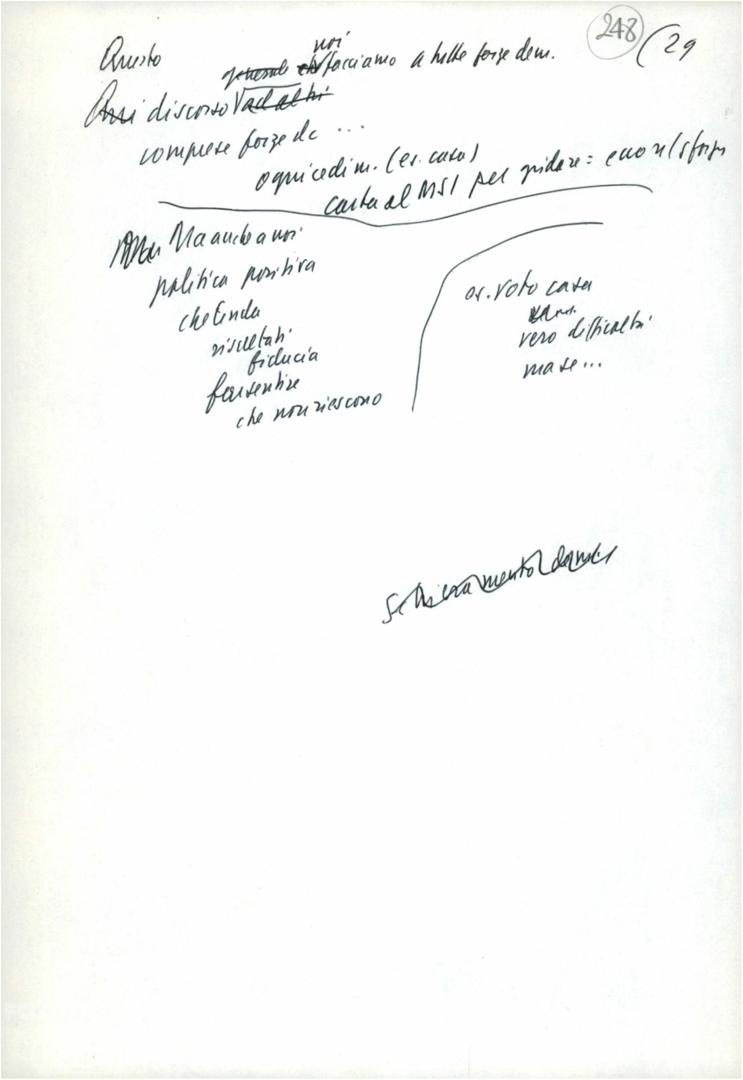 248 (29
Questo
noi
generale che facciamo a tutte forze dem.
discorso ad altri
comprese forze dc ...
ogni cedim. (es. casa)
carta al MSI per gridare: ecco
Ma anche a noi
politica positiva
che tenda
risultati
fiducia
far sentire
che non riescono
es. voto casa
vero difficoltà
ma se...
Schieramento